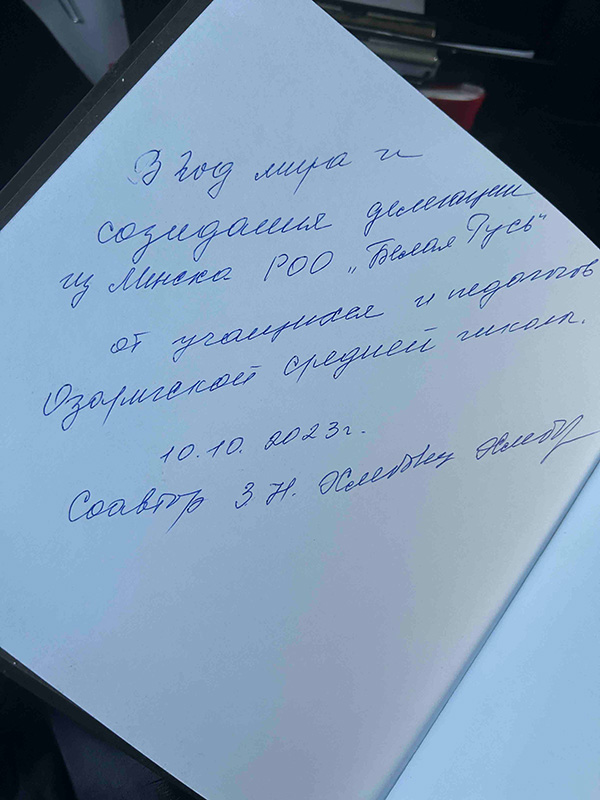 В Год мира и
созидания делегации
из Минска РОО „Белая Русь"
от учащихся и педагогов
Озаричской средней школы.
10.10.2023г.
Соавтор З.Н.